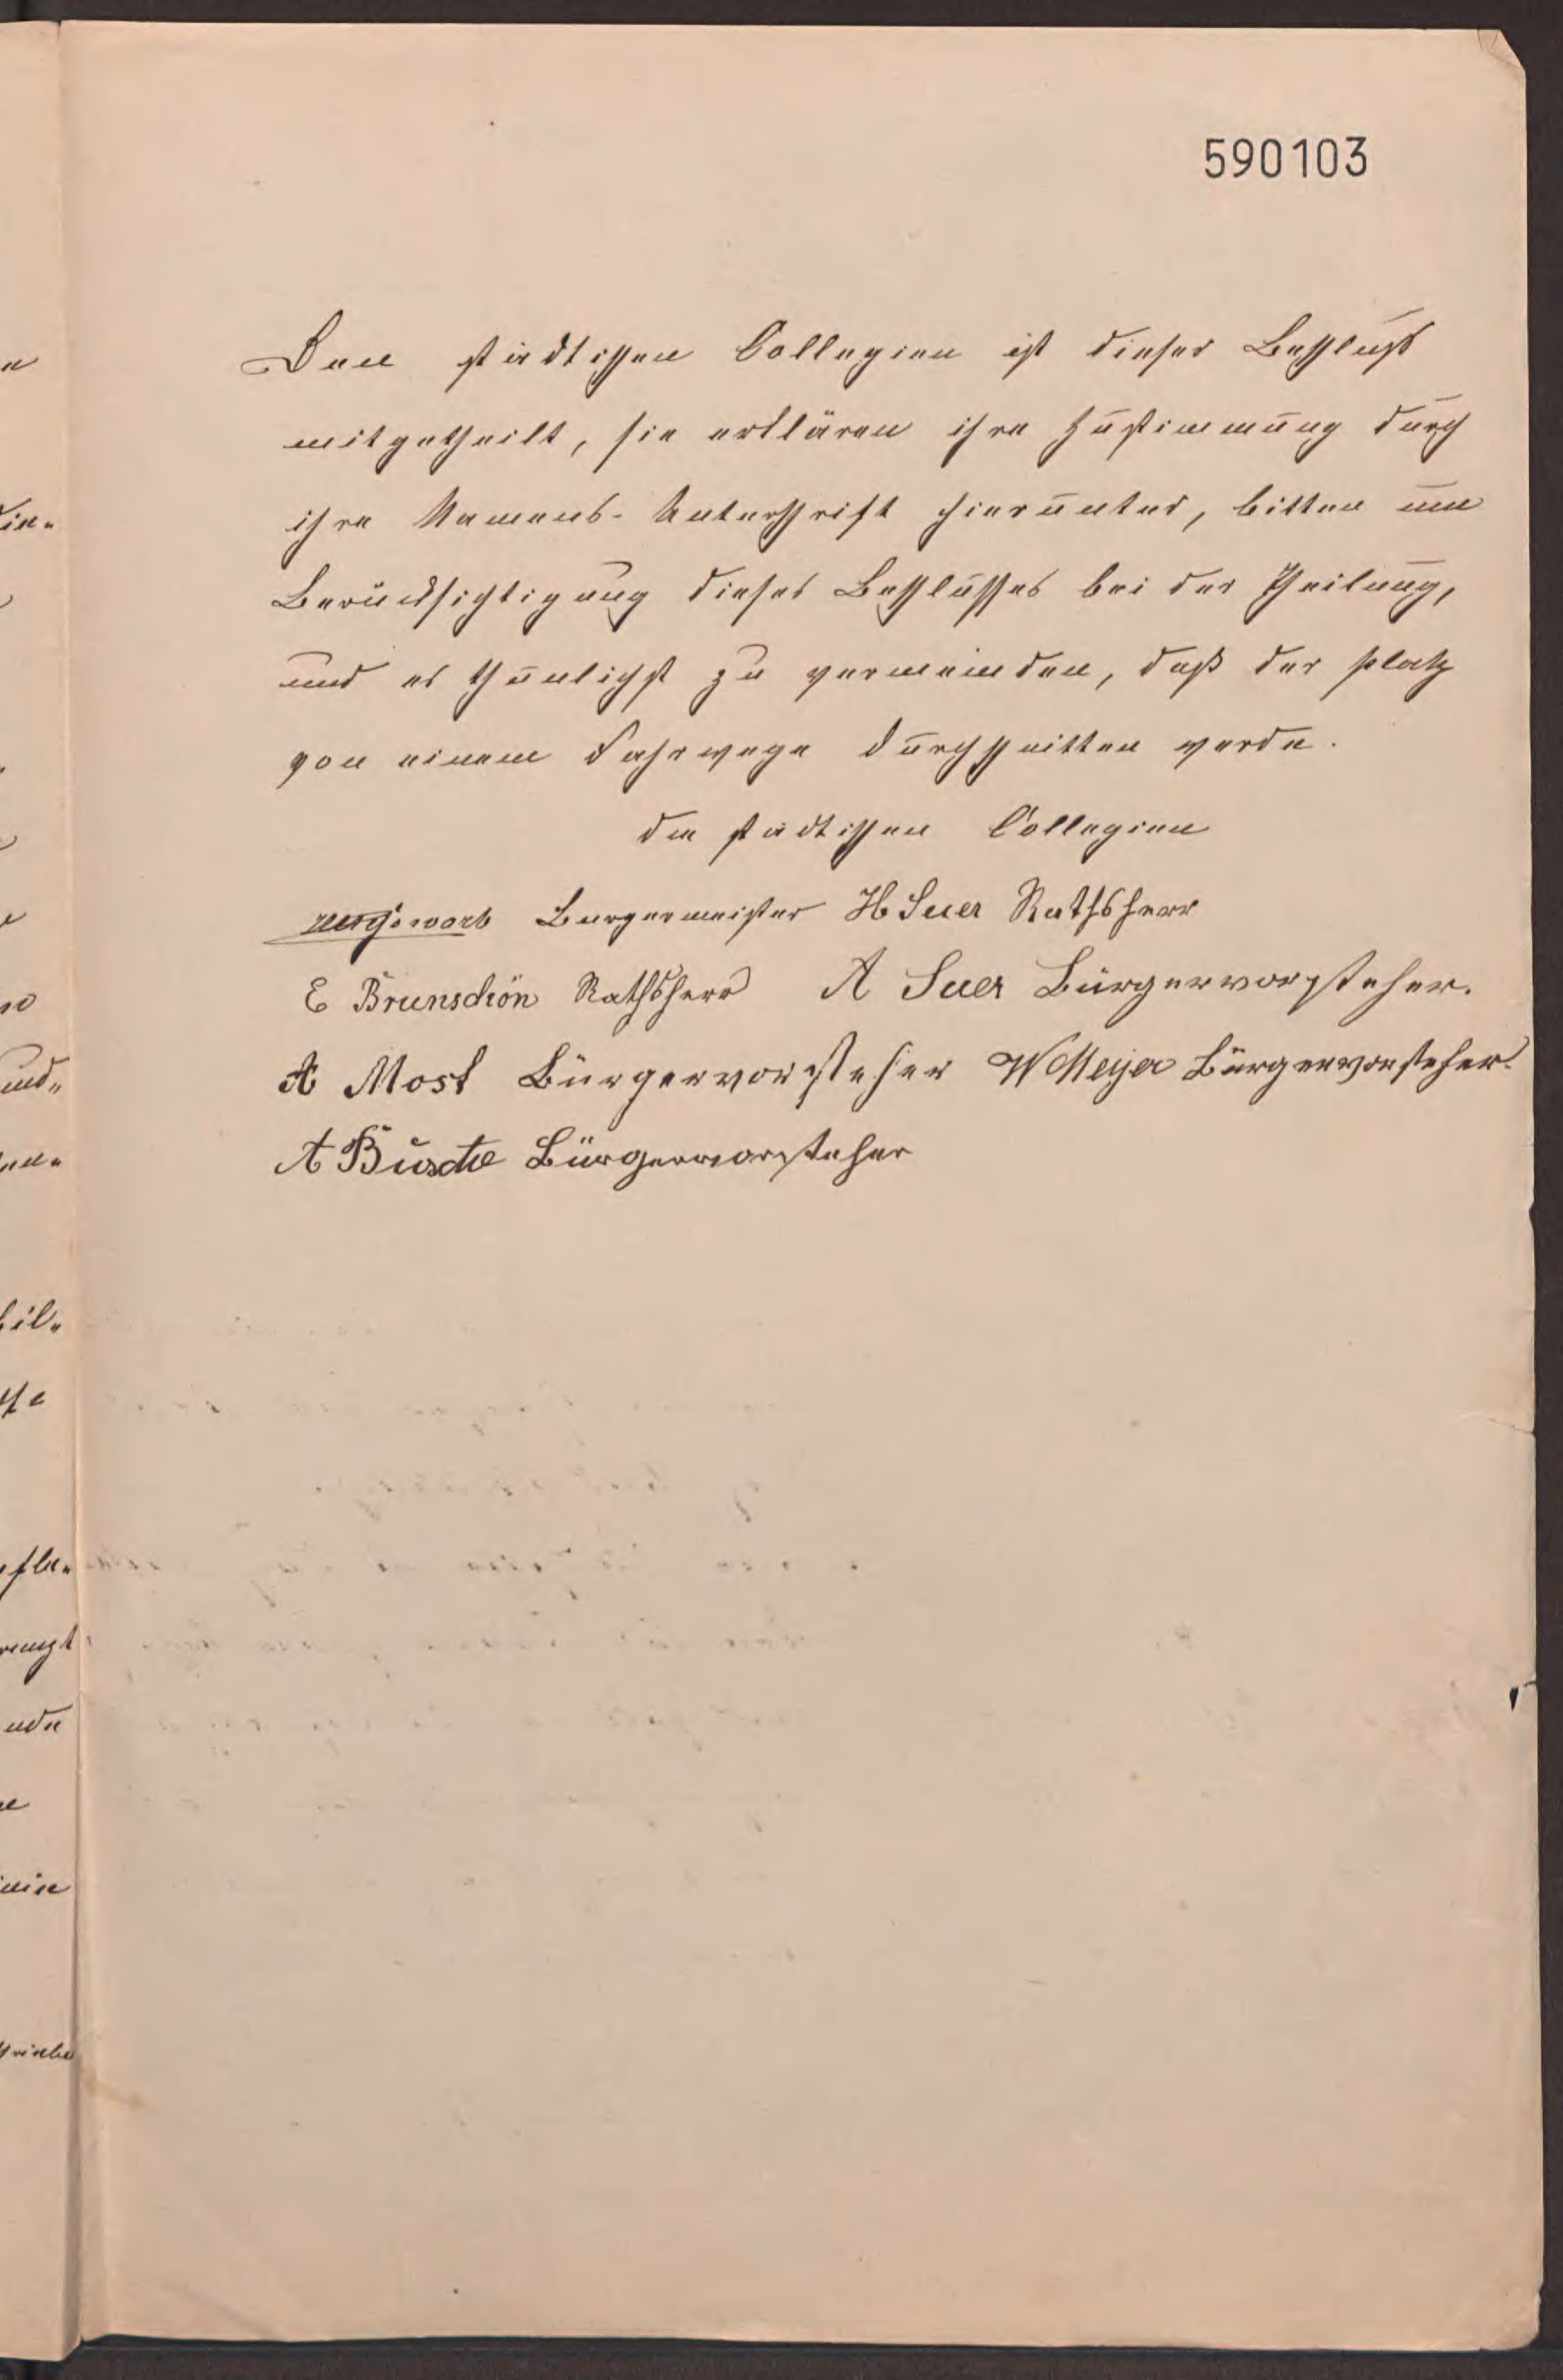 590103
Den städtischen Collegien ist dieser Beschluß
mitgetheilt, sie erklären ihre Zustimmung durch
ihre Namens-Unterschrift hierunter, bitten um
Berücksichtigung dieses Beschlusses bei der Theilung,
und es thunlichst zu vermeinden, daß der Platz
von einem Fahrwege durchschnitten werde.
die städtischen Collegien
Burgermeister H Suer Rathsherr
E Brunschön Rathsherr A Suer Bürgervorsteher.
A Most Bürgervorsteher W Meyer Bürgervorsteher.
A Busche Bürgervorsteher